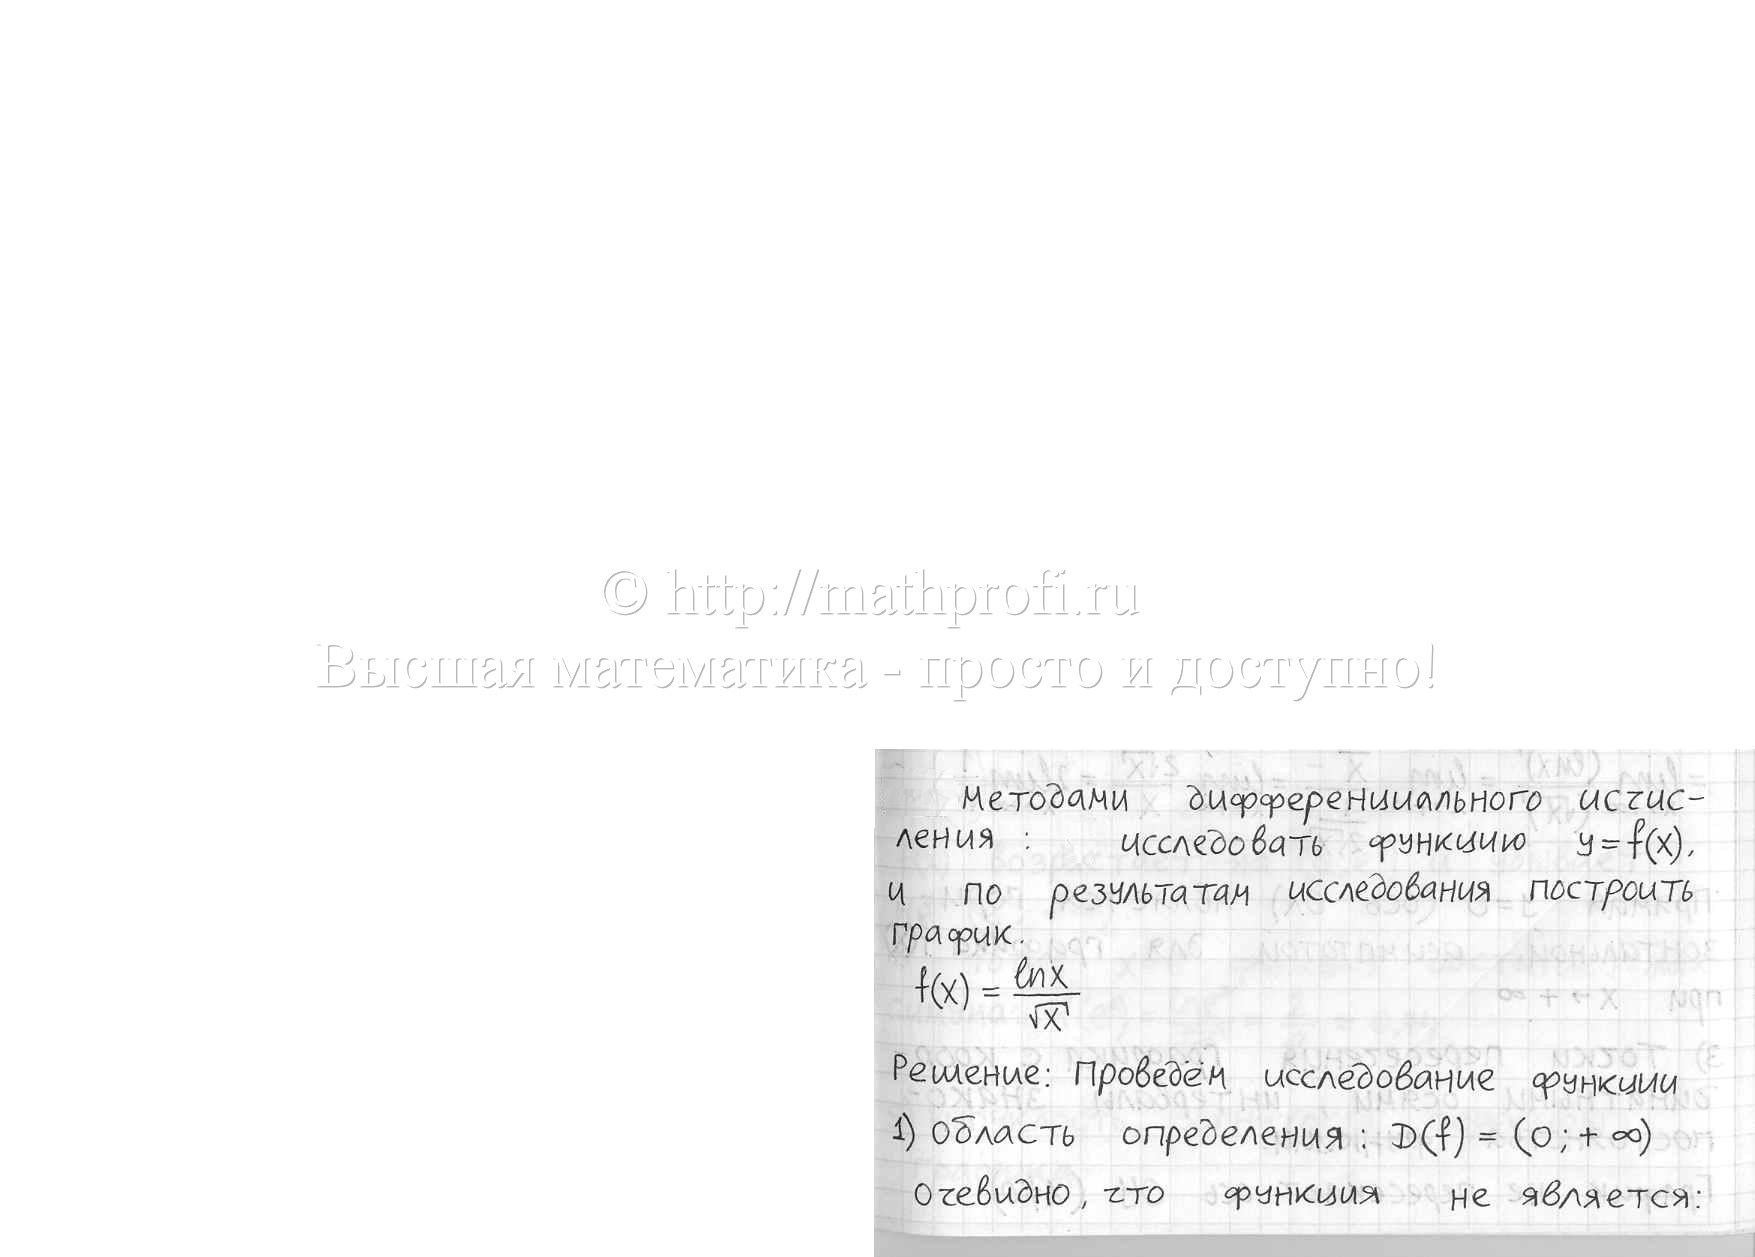 © http://mathprofi.ru
Высшая математика - просто и доступно!
Методами дифференциального исчис-
ления : исследовать функцию y=f(x),
и по результатам исследования построить
график.
f(x) = lnx/√x
Решение: Проведём исследование функции
1) Область определения: D(f) = (0;+∞)
Очевидно, что функция не является: